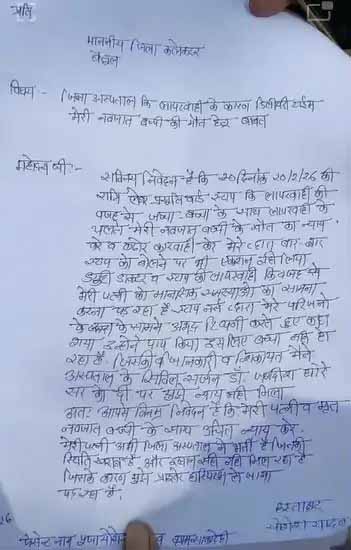 प्रति
माननीय जिला कलेक्टर
बैतूल
विषय :- जिला अस्पताल कि लापरवाही के कारण डिलीवरी टाईम
मेरी नवजात बच्ची की मौत हेतु बाबत
महोदय जी :-
सविनय निवेदन है कि दिनांक 20/2/26 की
रात्रि प्रसूति वार्ड स्टाफ कि लापरवाही की
वजह से जच्चा बच्चा के साथ लापरवाही के
चलते मेरी नवजात बच्ची की मौत का न्याय
करे व कठोर कार्रवाही करे मेरे द्वारा बार बार
स्टाफ को बोलने पर भी एक्शन नहीं लिया
ड्यूटी डाक्टर व स्टाफ की लापरवाही कि वजह से
मेरी पत्नी को मानसिक समस्याओं का सामना
करना पड़ रहा है स्टाफ नर्स द्वारा मेरे परिजनो
के सामने अभद्र टिप्पणी करते हुए कहा
गया उन्होंने पाप किया इसलिए बच्चा नहीं हो
रहा है। जिसकी जानकारी व शिकायत मैंने
अस्पताल के सिविल सर्जन डॉ. जगदीश घोरे
सर को दी पर कोई न्याय नहीं मिला
अतः आपसे विनम्र निवेदन है कि मेरी पत्नी व मृत
नवजात बच्ची के साथ उचित न्याय करे
मेरी पत्नी अभी जिला अस्पताल में भर्ती है जिनकी
स्थिति खराब है और इलाज सही नहीं मिल रहा है
जिसके कारण मुझे प्राइवेट हास्पिटल ले जाना
पड़ रहा है.
हस्ताक्षर
यादव
26